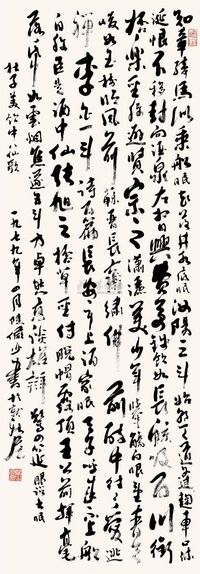 知章騎馬似乘船眼花落井水底眠汝陽三斗始朝天道逢麴車口流
涎恨不移封向酒泉左相日興費萬錢飲如長鯨吸百川銜
杯樂聖稱避賢宗之瀟灑美少年舉觴白眼望青天
皎如玉樹臨風前蘇晉長齋繡佛前醉中往往愛逃
禪李白一斗詩百篇長安市上酒家眠天子呼來不上船
自稱臣是酒中仙張旭三杯草聖傳脫帽露頂王公前揮毫
落紙如雲煙焦遂五斗方卓然高談雄辯驚四筵
杜子美飲中八仙歌 一九七九年四月